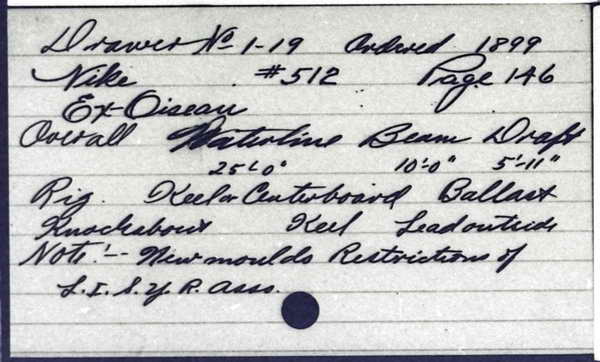 Drawer No 1-19 Ordered 1899
Nike #512 Page 146
Ex-Oiseau
Overall Waterline Beam Draft
25'-0" 10'-0" 5'-11"
Rig. Keel or Centerboard Ballast
Knockabout Keel Lead outside
Note:-- New moulds Restrictions of
L. I. S. Y. R. Asss.